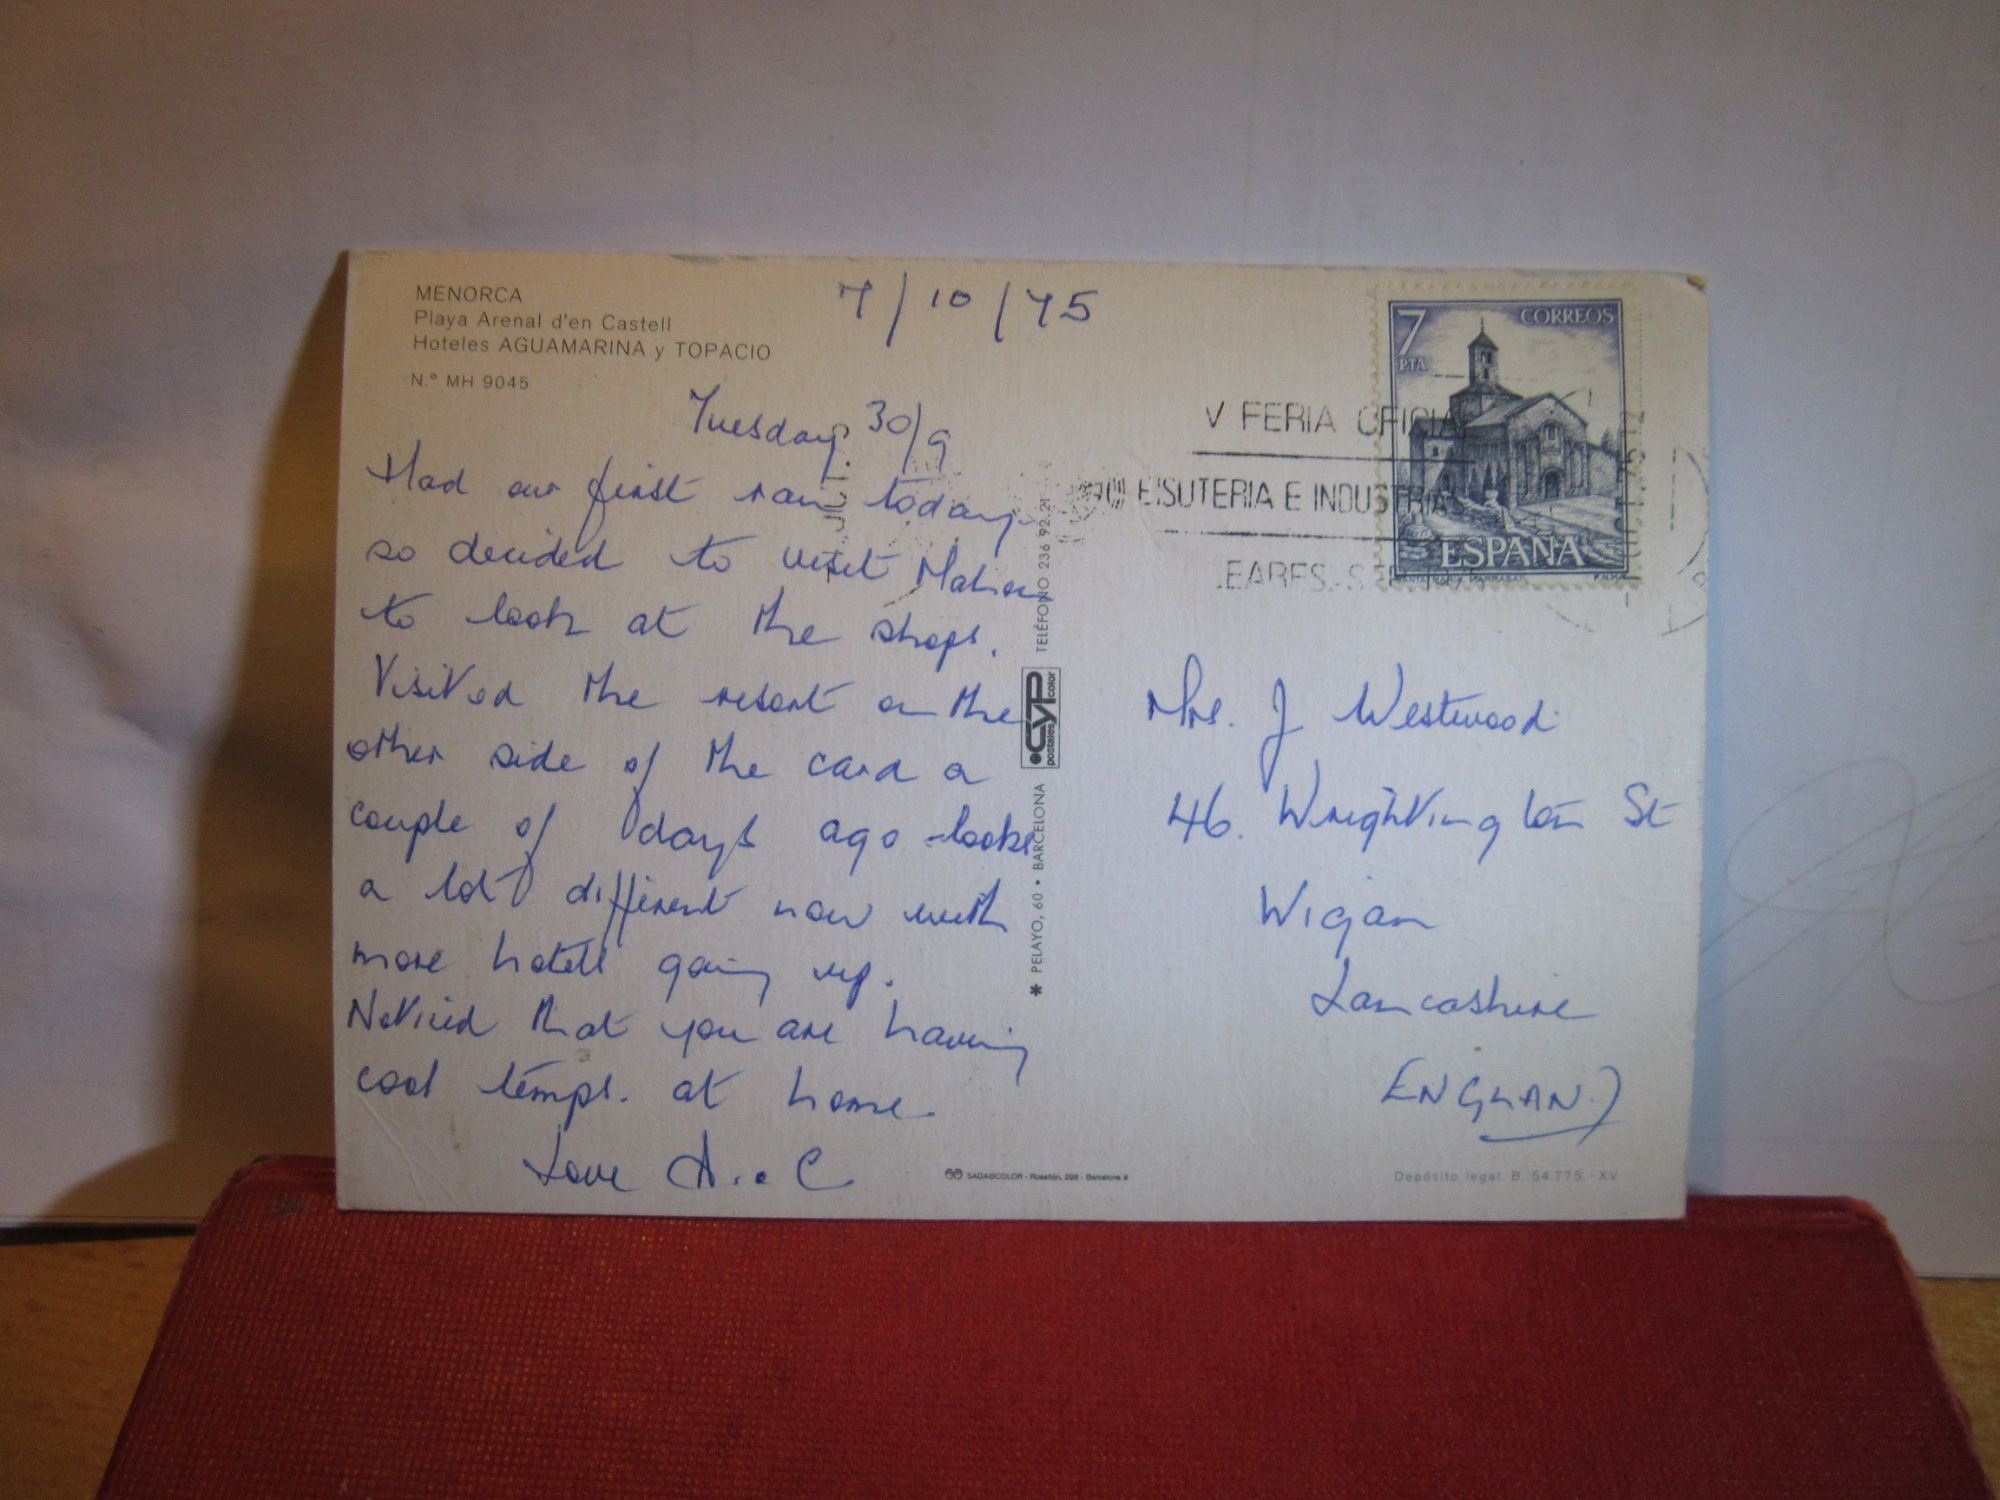 MENORCA
Playa Arenal d'en Castell
Hoteles AGUAMARINA y TOPACIO
N.º MH 9045
7/10/75
Tuesday 30/9
Had our first rain today
so decided to visit Mahon
to look at the shops.
Visited the resort on the
other side of the card a
couple of days ago - looks
a lot different now with
more hotels going up.
Noticed that you are having
cool temps. at home.
Love A. & C
TELÉFONO 236 92 21
CYP
postales color
* PELAYO, 60 • BARCELONA
SADAGCOLOR - Rosellón, 298 - Barcelona 9
7
PTA
CORREOS
ESPAÑA
V FERIA OFICIAL
BISUTERIA E INDUSTRIAS
LEARES
Mrs. J Westwood
46. Wrightington St
Wigan
Lancashire
ENGLAND
Depósito legal B. 54.775 - XV